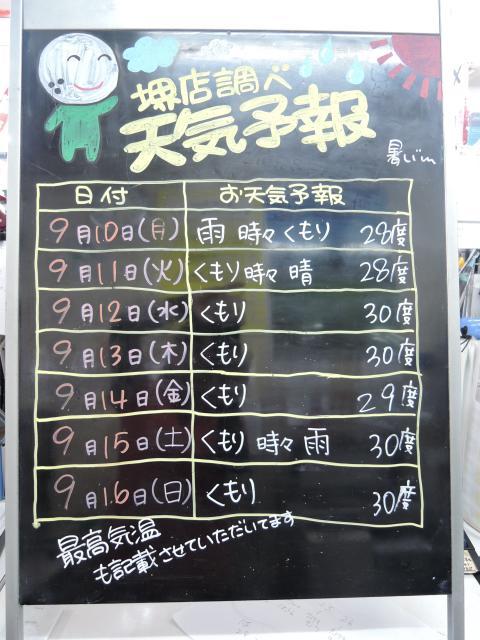 堺店調べ
天気予報
暑いm
日付 お天気予報
9月10日(月) 雨時々くもり 28度
9月11日(火) くもり時々晴 28度
9月12日(水) くもり 30度
9月13日(木) くもり 30度
9月14日(金) くもり 29度
9月15日(土) くもり時々雨 30度
9月16日(日) くもり 30度
最高気温
も記載させていただいてます